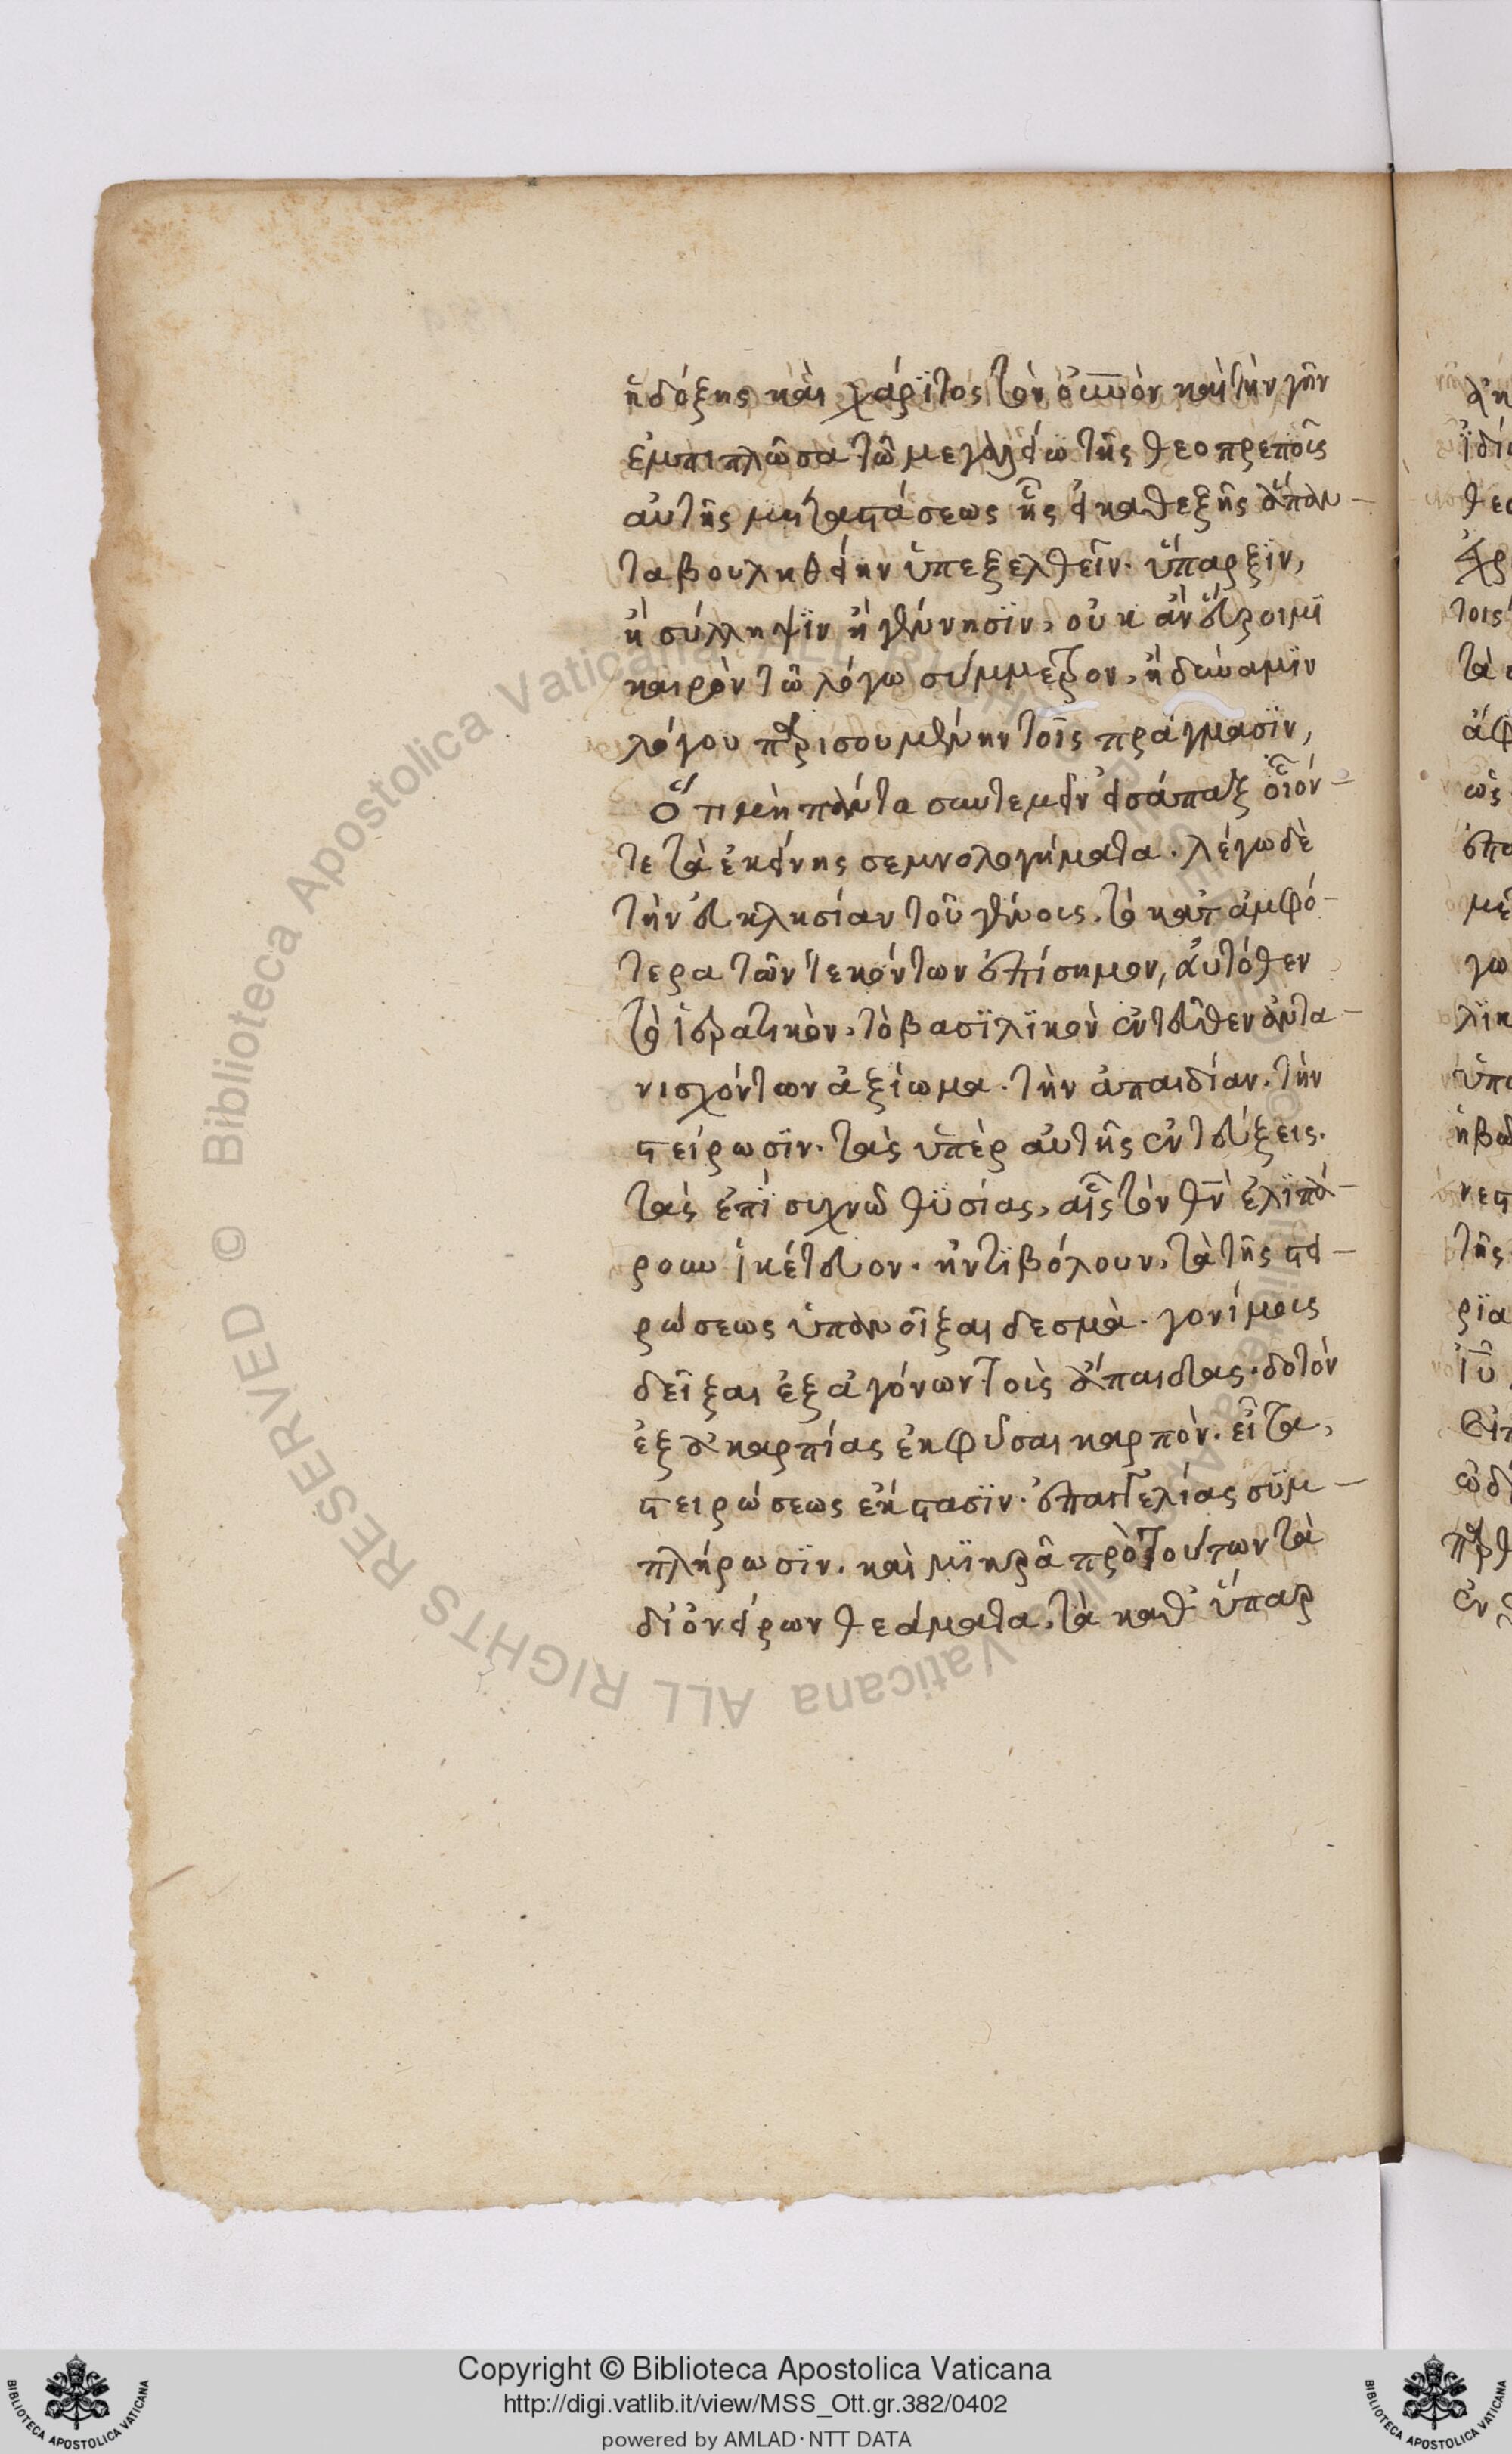 ἢ δόξης καὶ χάριτος τὸν οὐνὸν καὶ τὴν γῆν
ἐμπιπλῶσα τῷ μεγαλείῳ τῆς θεοπρεποῦς
αὐτῆς μεταστάσεως ἧς εἰ καθεξῆς ἅπαν-
τα βουληθείην ὑπεξελθεῖν. ὕπαρξϊν,
ἢ σύλληψϊν ἢ γέννησϊν, οὐκ ἂν εὕροιμϊ
καιρὸν τῷ λόγω σύμμετρον, ἢ δύναμϊν
λόγου παρισουμένην τοῖς πράγμασϊν,
Ὅτι μὴ πάντα συντεμεῖν εἰσάπαξ οἷόν-
τε τὰ ἐκείνης σεμνολογήματα. λέγω δὲ
τὴν εὐκλησίαν τοῦ γένους. τὸ κατ' ἀμφό-
τερα τῶν τεκόντων ἐπίσημον, αὐτόθεν
τὸ ἱερατικὸν, τὸ βασϊλϊκὸν ἐντεῦθεν ἀντα-
νισχόντων ἀξίωμα. τὴν ἀπαιδίαν. τὴν
στείρωσϊν. τὰς ὑπὲρ αὐτῆς ἐντεύξεις.
τὰς ἐπὶ συχνῶ θϋσίας, αἷς τὸν θν̅ ἐλϊπά-
ρουν ἱκέτευον. ἠντϊβόλουν, τὰ τῆς στει-
ρώσεως ὑπανοῖξαι δεσμὰ. γονίμους
δεῖξαι ἐξ ἀγόνων τοὺς ἄπαιδας. δοτὸν
ἐξ ἀκαρπίας ἐκφῦσαι καρπὸν. εἶτα,
στειρώσεως ἔκστασϊν. ἐπαγγελίας σϋμ-
πλήρωσϊν. καὶ μϊκρὰ πρὸ τούτων τὰ
δι' ὀνείρων θεάματα, τὰ καθ' ὕπαρ
Copyright © Biblioteca Apostolica Vaticana
http://digi.vatlib.it/view/MSS_Ott.gr.382/0402
powered by AMLAD·NTT DATA